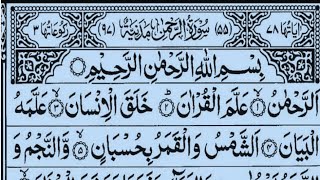 اٰيَاتُهَا ٧٨ (٥٥) سُوْرَةُ الرَّحْمٰنِ مَدَنِيَّةٌ (٩٧) رُكُوْعَاتُهَا ٣
بِسْمِ اللهِ الرَّحْمٰنِ الرَّحِيْمِ
اَلرَّحْمٰنُ ۙ﴿١﴾ عَلَّمَ الْقُرْاٰنَ ؕ﴿٢﴾ خَلَقَ الْاِنْسَانَ ۙ﴿٣﴾ عَلَّمَهُ
الْبَيَانَ ﴿٤﴾ اَلشَّمْسُ وَالْقَمَرُ بِحُسْبَانٍ ﴿٥﴾ وَّالنَّجْمُ وَ